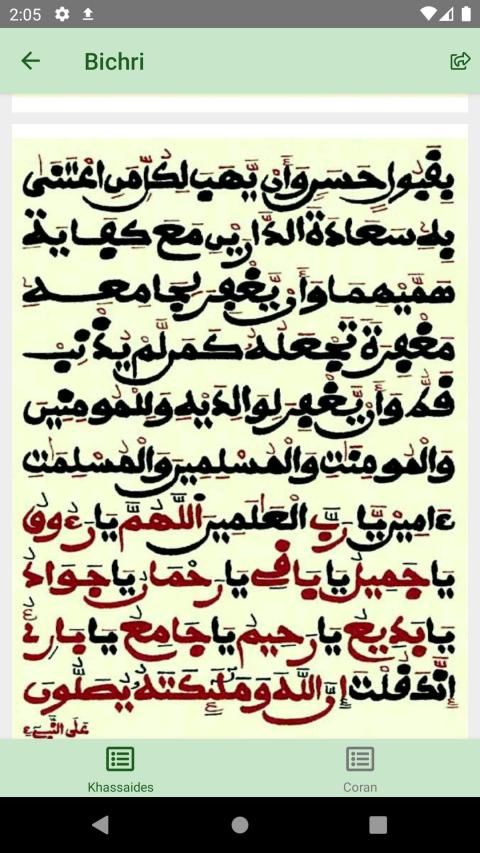 2:05
Bichri
بقبول حسن وأن يهب لكل من اعتنى
به سعادة الدارين مع كفاية
هميهما وأن يغفر لجامعه
مغفرة تجعله كمن لم يذنب
قط وأن يغفر لوالديه وللمومنين
والمومنت والمسلمين والمسلمت
ءامين يا رب العلمين اللهم يا رءوف
يا جميل يا باقي يا رحمان يا جواد
يا بديع يا رحيم يا جامع يا بارئ
إنك قلت إن الله وملئكته يصلون
على النبيء
Khassaides
Coran